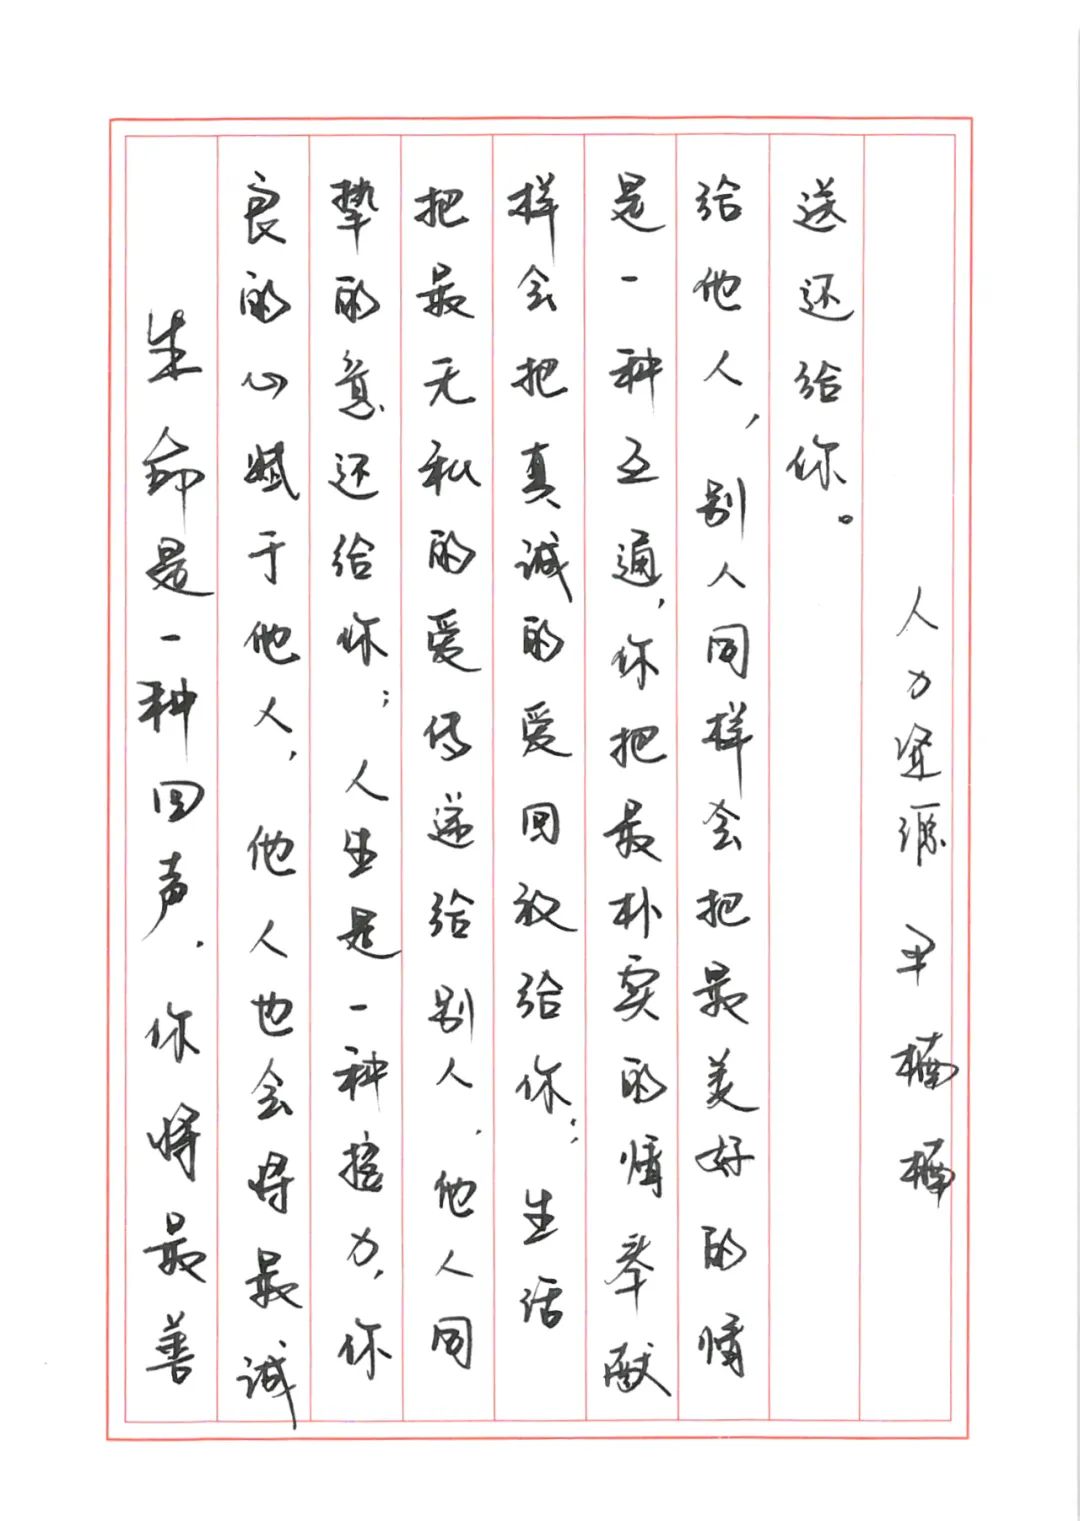 生命是一种回声，你将最善
良的心赋于他人，他人也会将最诚
挚的意还给你；人生是一种接力，你
把最无私的爱传递给别人，他人同
样会把真诚的爱回放给你；生活
是一种互通，你把最朴实的情奉献
给他人，别人同样会把最美好的情
送还给你。
人力资源 尹楠楠